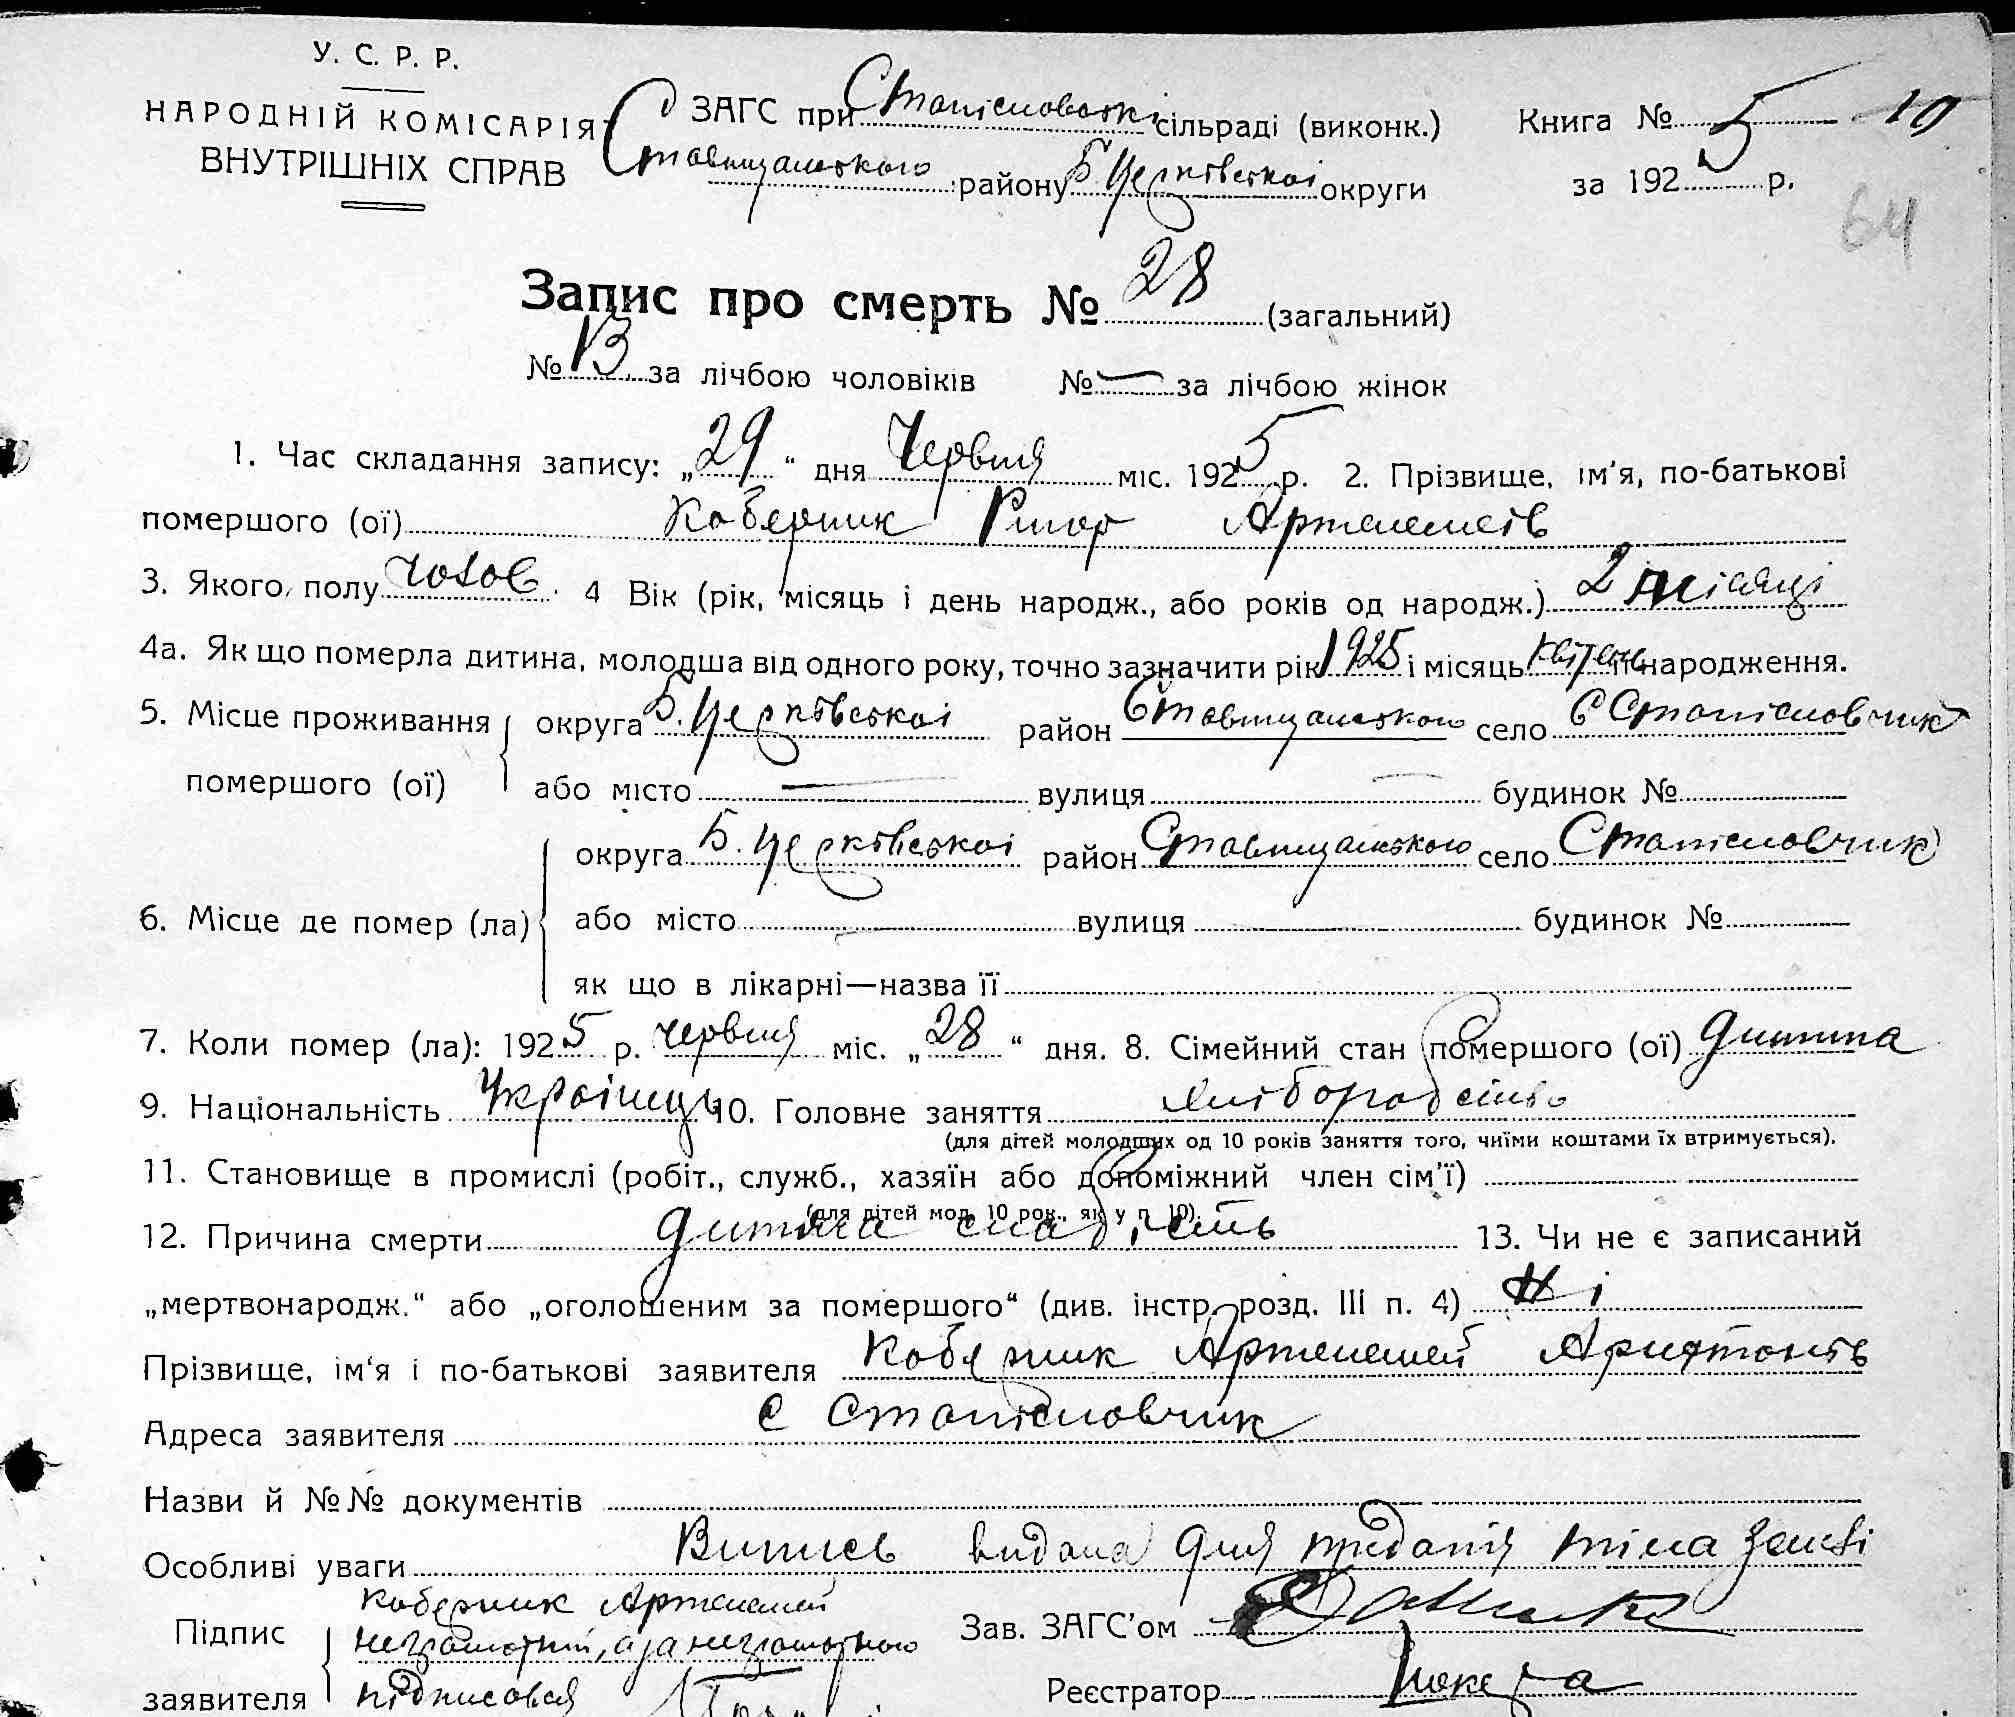 У. С. Р. Р.
НАРОДНІЙ КОМІСАРІЯТ
ВНУТРІШНІХ СПРАВ
ЗАГС при Станіславській сільраді (виконк.)
Ставищанського району Б Церківської округи
Книга № 5 19
за 1925 р.
64
Запис про смерть № 28 (загальний)
№ 13 за лічбою чоловіків № — за лічбою жінок
1. Час складання запису: „29“ дня Червня міс. 1925 р. 2. Прізвище, ім'я, по-батькові
помершого (ої) Коберник Артемеїв
3. Якого полу чолов. 4 Вік (рік, місяць і день народж., або років од народж.) 2 місяці
4а. Як що померла дитина, молодша від одного року, точно зазначити рік 1925 і місяць квітень народження.
5. Місце проживання помершого (ої) округа Б. Церківської район Ставищанського село с Станіславчик
або місто — вулиця — будинок №
6. Місце де помер (ла) округа Б. Церківської район Ставищанського село Станіславчик
або місто — вулиця будинок №
як що в лікарні—назва її
7. Коли помер (ла): 1925 р. червня міс. „28“ дня. 8. Сімейний стан помершого (ої) дитина
9. Національність Українець 10. Головне заняття хліборобство
(для дітей молодших од 10 років заняття того, чиїми коштами їх втримується).
11. Становище в промислі (робіт., служб., хазяїн або допоміжний член сім'ї)
(для дітей мол. 10 рок., як у п. 10).
12. Причина смерти дитяча слабість 13. Чи не є записаний
„мертвонародж.“ або „оголошеним за помершого“ (див. інстр. розд. III п. 4) Ні
Прізвище, ім'я і по-батькові заявителя Коберник Артемей
Адреса заявителя с Станіславчик
Назви й №№ документів
Особливі уваги Випись видана для придання тіла землі
Підпис заявителя Коберник Артемей
неграмотний, а за неграмотного
підписався
Зав. ЗАГС'ом
Реєстратор